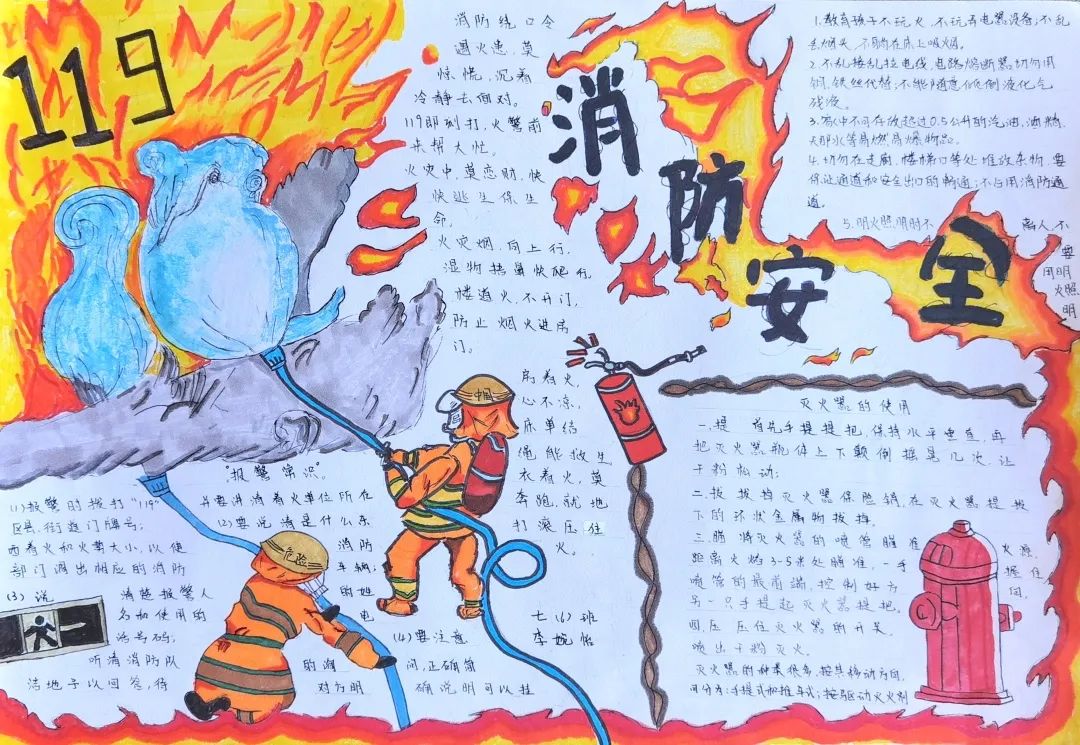 119
消防安全
消防绕口令
遇火患,莫
惊慌,沉着
冷静去面对。
119即刻打,火警前
来帮大忙。
火灾中,莫恋财,快
快逃生保生
命,
火灾烟,向上行,
湿物捂鼻快爬行
楼道火,不开门,
防止烟火进房
门。
房着火,
心不凉,
床单结
绳能救生
衣着火,莫
奔跑,就地
打滚压住
火。
1.教育孩子不玩火,不玩弄电器设备;不乱
丢烟头,不躺在床上吸烟。
2.不乱接乱拉电线,电路熔断器切勿用
铜、铁丝代替;不能随意倾倒液化气
残液。
3.家中不可存放超过0.5公升的汽油、酒精、
天那水等易燃易爆物品。
4.切勿在走廊、楼梯口等处堆放杂物,要
保证通道和安全出口的畅通;不占用消防通
道。
5.明火照明时不离人,不
要
用明
火照
明
灭火器的使用
一.提 首先手提提把,保持水平垂直,再
把灭火器瓶体上下颠倒摇晃几次,让
干粉松动;
二.拔 拔掉灭火器保险销,在灭火器提把
下的环状金属物拔掉。
三.瞄 将灭火器的喷管瞄准火源,
距离火焰3-5米处瞄准,一手握住
喷管的最前端,控制好方向,
另一只手提起灭火器提把。
四.压 压住灭火器的开关,
喷出干粉灭火。
灭火器的种类很多,按其移动方向
可分为:手提式和推车式;按驱动灭火剂
"报警常识"
(1)报警时拨打"119" 并要讲清着火单位所在
区县、街道门牌号; (2)要说清是什么东
西着火和火势大小,以便消防
部门调出相应的消防车辆;
(3)说清楚报警人的姓
名和使用的电
话号码;
(4)要注意
听清消防队的询问,正确简
洁地予以回答,待对方明确说明可以挂
中国
危险
七(6)班
李婉怡